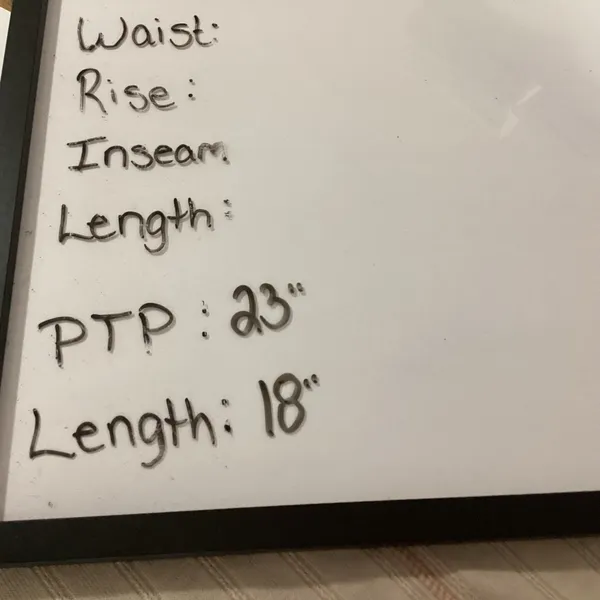 Waist:
Rise:
Inseam
Length:
PTP: 23"
Length: 18"